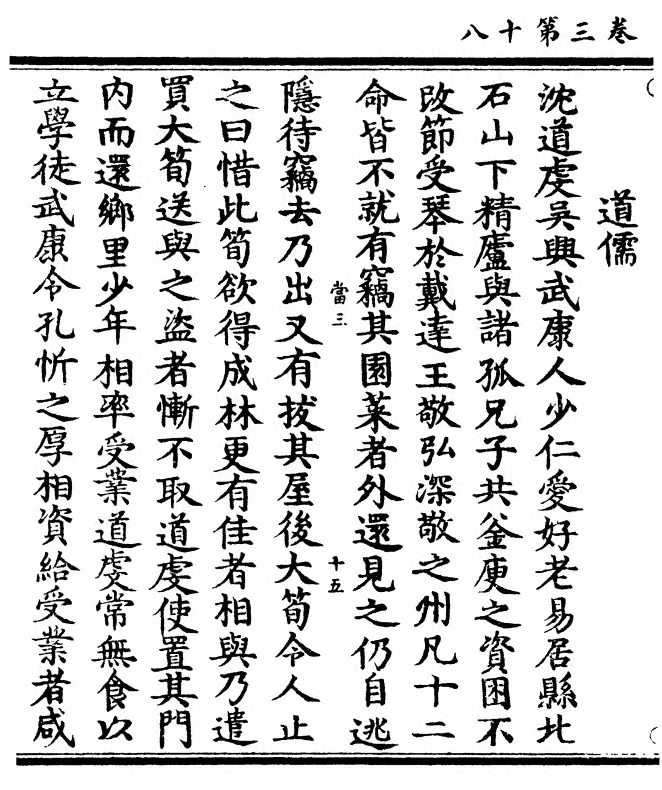 卷三第十八
道儒
沈道虔吳興武康人少仁愛好老易居縣北
石山下精廬與諸孤兄子共釜庾之資困不
改節受琴於戴逵王敬弘深敬之州凡十二
命皆不就有竊其園菜者外還見之仍自逃
當三
十五
隱待竊去乃出又有拔其屋後大筍令人止
之曰惜此筍欲得成林更有佳者相與乃遣
買大筍送與之盜者慚不取道虔使置其門
內而還鄉里少年相率受業道虔常無食以
立學徒武康令孔忻之厚相資給受業者咸